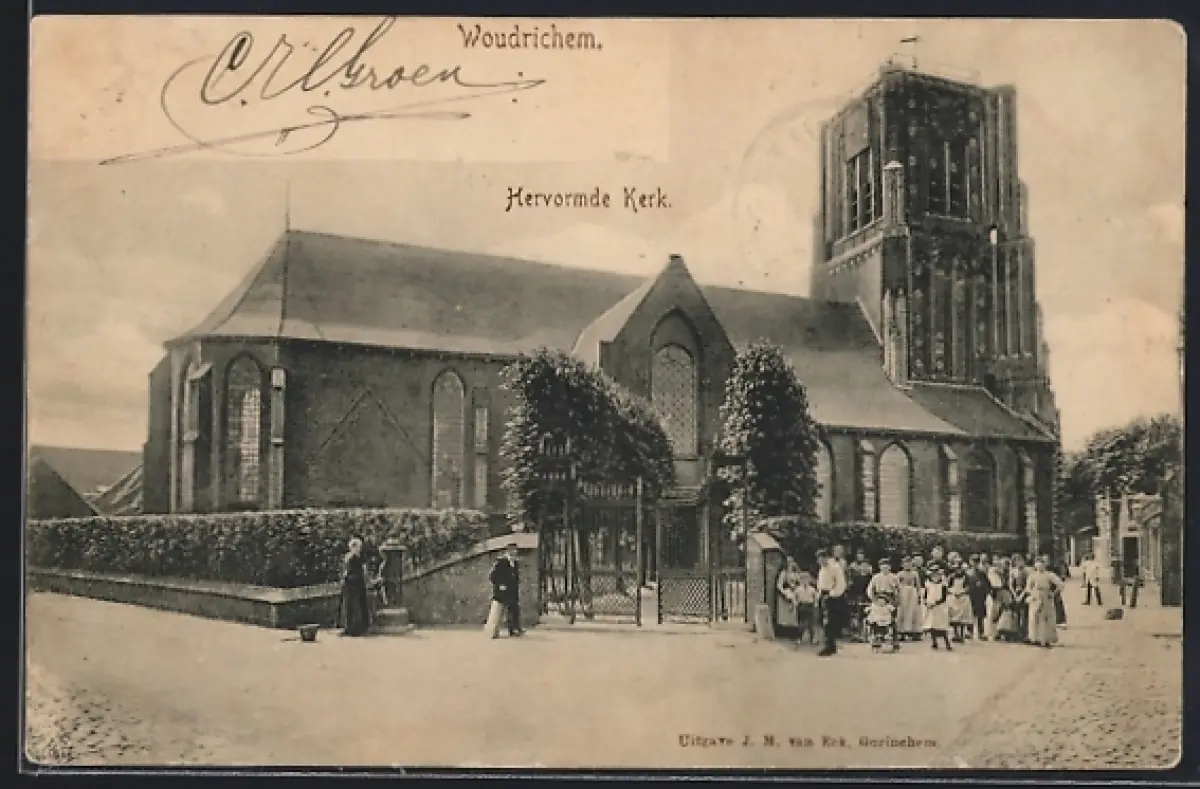 Woudrichem.
C. H. C. Groen.
Hervormde Kerk.
Uitgave J. M. van Eck, Gorinchem